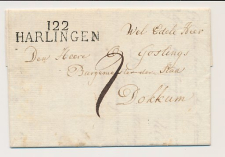 122
HARLINGEN
Wel Edele Heer
Den Heere Goslings
Burgemeester der Stad
Dokkum